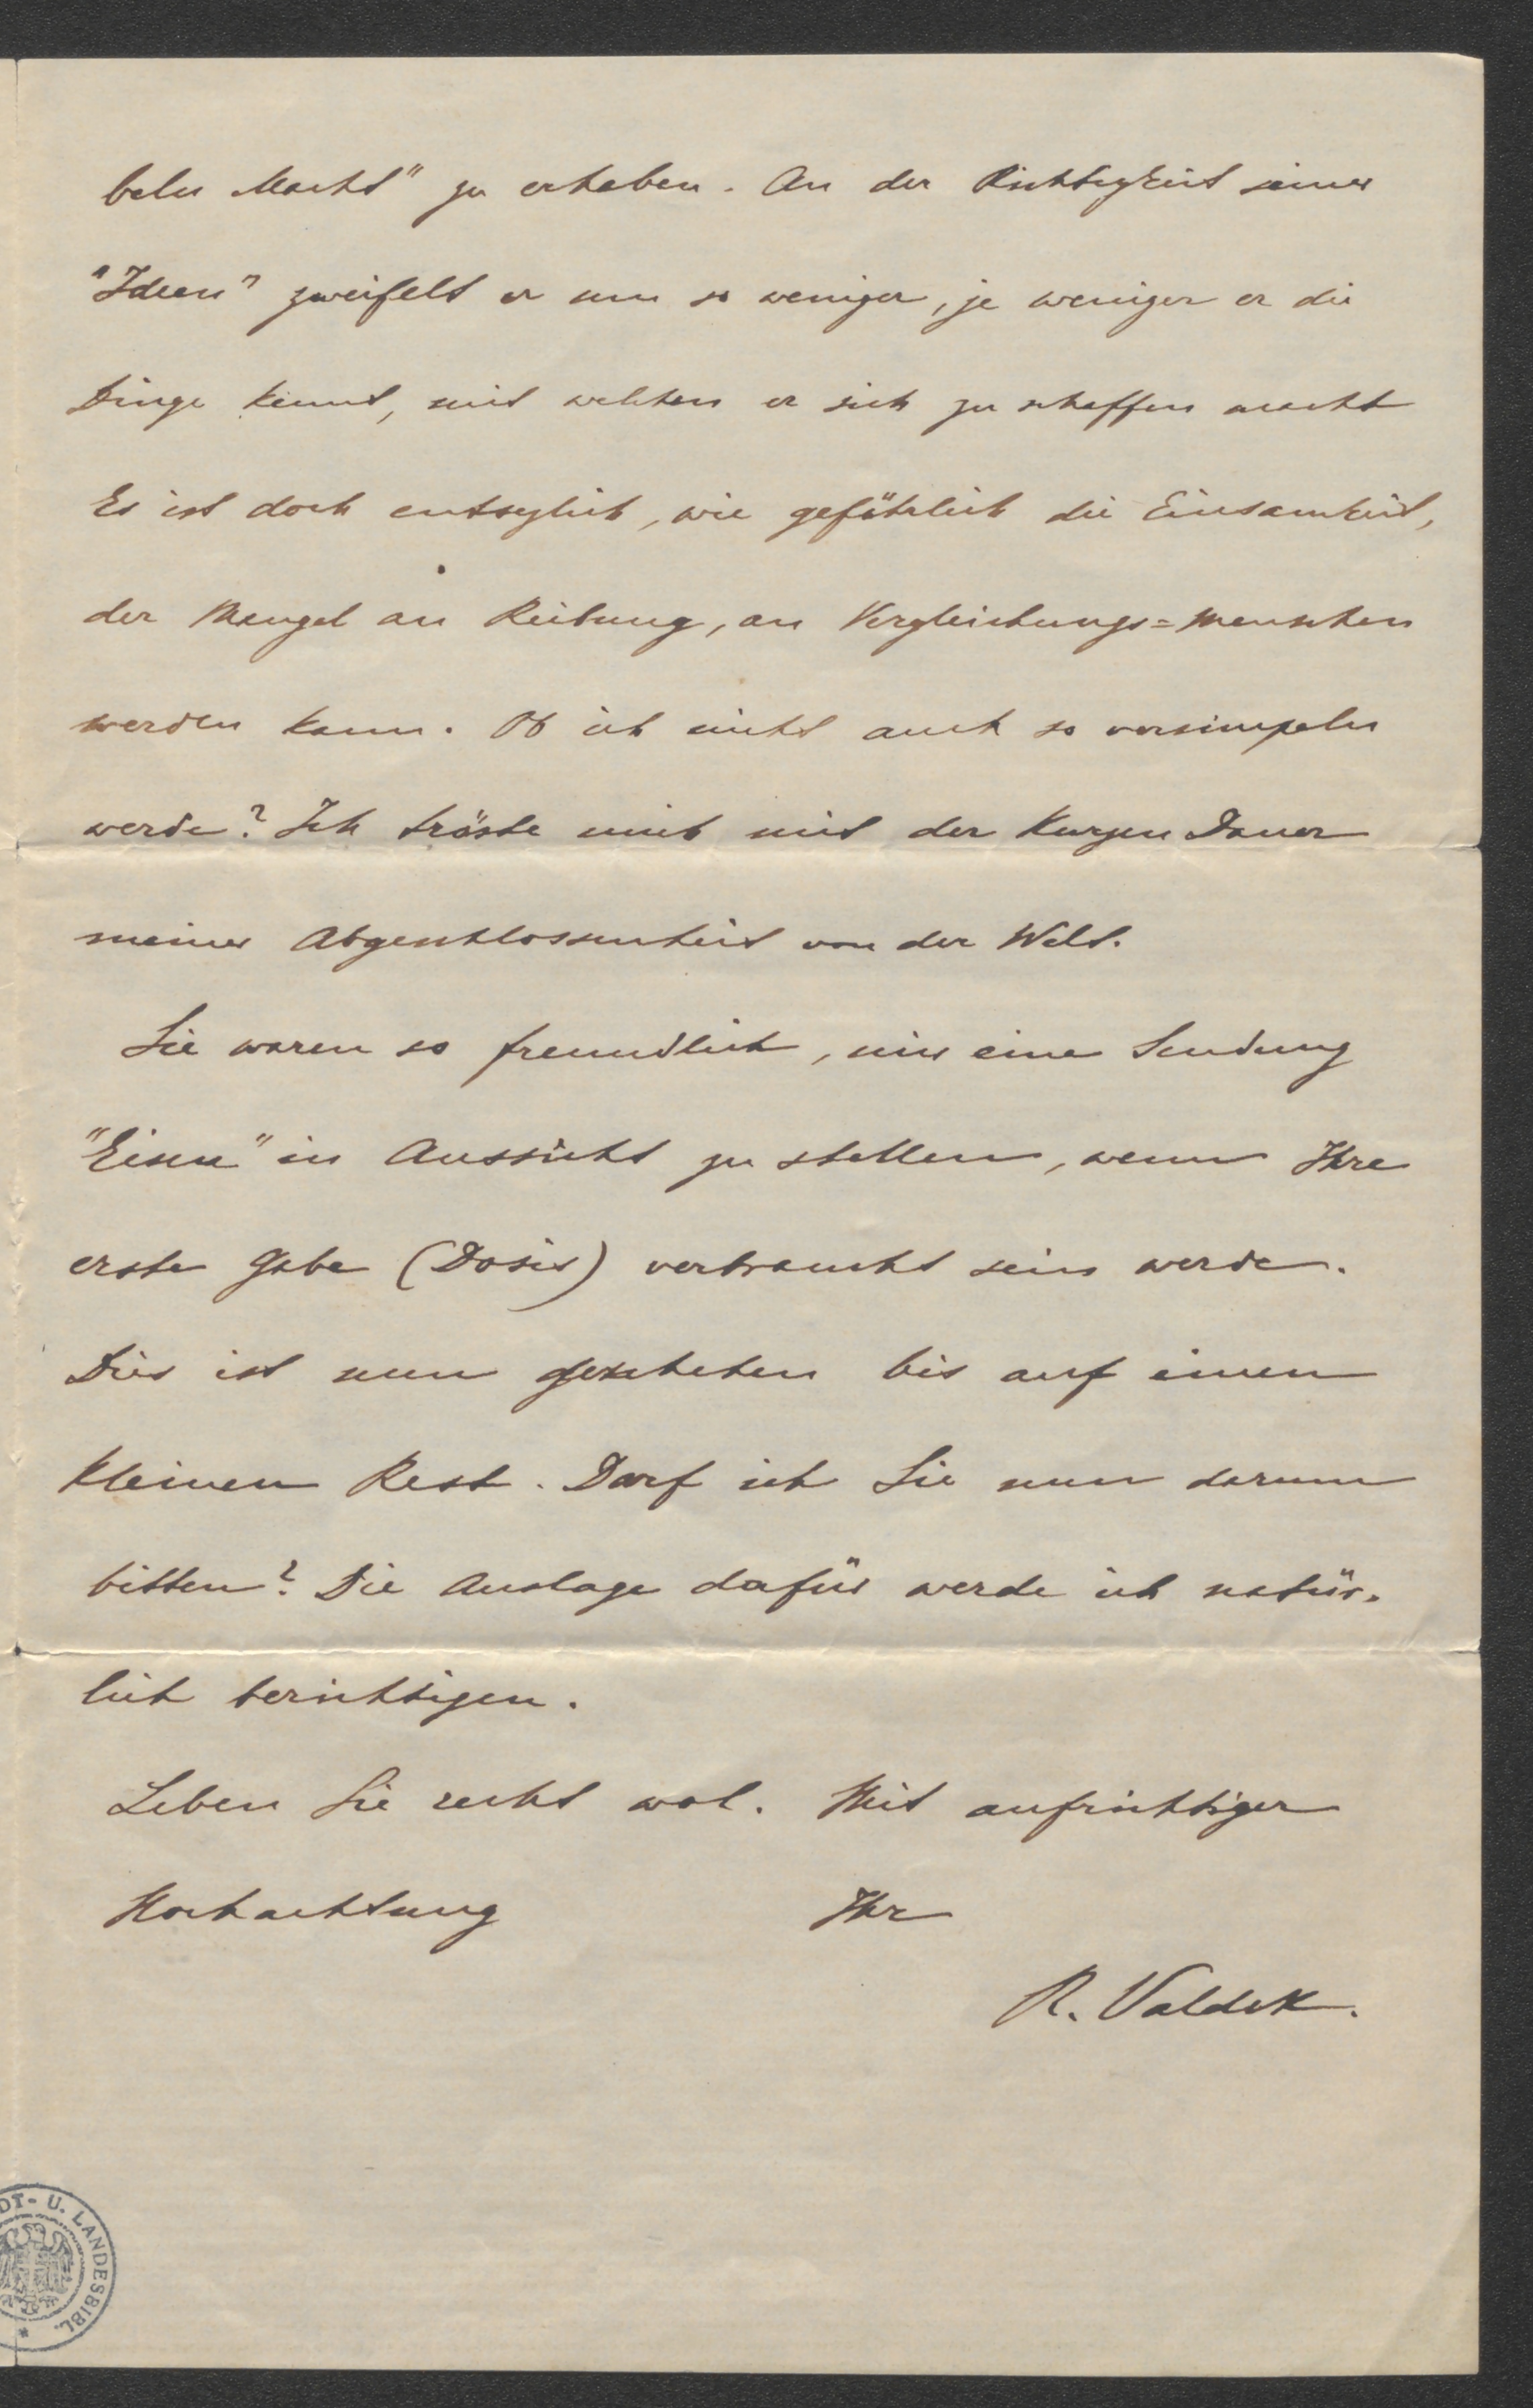 beln Macht" zu erheben. An der Richtigkeit seiner
"Ideen" zweifelt er um so weniger, je weniger er die
Dinge kennt, mit welchen er sich zu schaffen macht
Es ist doch entsezlich, wie gefährlich die Einsamkeit,
der Mangel an Reibung, an Vergleichungs=menschen
werden kann. Ob ich nicht auch so versimpeln
werde? Ich tröste mich mit der kurzen Dauer
meiner Abgeschlossenheit von der Welt.
Sie waren so freundlich, mir eine Sendung
"Eisen" in Aussicht zu stellen, wenn Ihre
erste Gabe (Dosis) verbraucht sein werde.
Dies ist nun geschehen bis auf einen
kleinen Rest. Darf ich Sie nun darum
bitten? Die Auslage dafür werde ich natür-
lich berichtigen.
Leben Sie recht wol. Mit aufrichtiger
Hochachtung Ihr
R. Valdek.
DT- U. LANDESBIBL. *